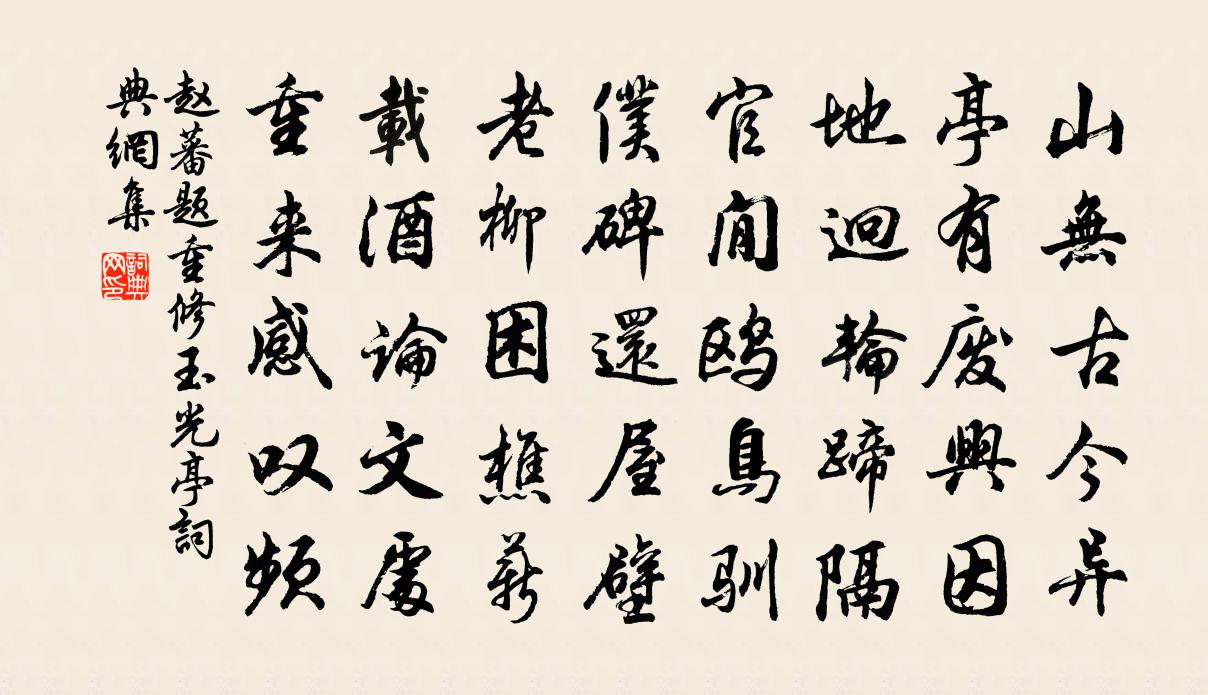 山無古今异
亭有废興因
地迥輪蹄隔
官閒鸥鳥馴
僕碑還屋壁
老柳困樵薪
載酒論文處
重来感叹频
赵蕃题重修玉光亭詞
典網集
詞典网印